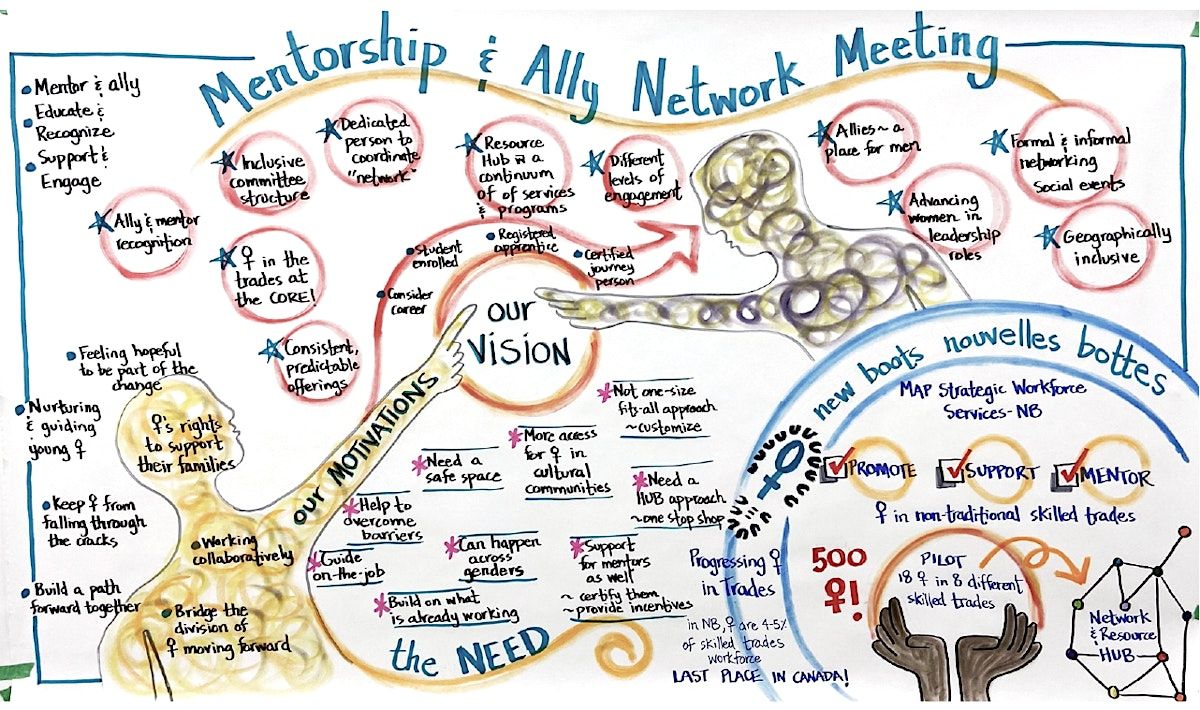 Mentorship & Ally Network Meeting
• Mentor & ally
• Educate &
Recognize
• Support &
Engage
Ally & mentor
recognition
Inclusive
committee
structure
Dedicated
person to
coordinate
"network"
♀ in the
trades at
the CORE!
Consistent,
predictable
offerings
Resource
Hub w a
continuum
of of services
& programs
Different
levels of
engagement
Allies ~ a
place for men
Formal & informal
networking
Social events
Advancing
women in
leadership
roles
Geographically
inclusive
• Consider
career
• Student
enrolled
• Registered
apprentice
• Certified
journey
person
our
VISION
our MOTIVATIONS
• Feeling hopeful
to be part of the
change
• Nurturing
& guiding
young ♀
♀'s rights
to support
their families
• Keep ♀ from
falling through
the cracks
• Working
collaboratively
• Build a path
forward together
• Bridge the
division of
♀ moving forward
* Not one-size
fits-all approach
~ customize
* More access
for ♀ in
cultural
communities
* Need a
safe space
* Need a
HUB approach
~ one stop shop
* Help to
overcome
barriers
* Guide
on-the-job
* Can happen
across
genders
* Support
for mentors
as well
~ certify them
~ provide incentives
* Build on what
is already working
the NEED
new boots nouvelles bottes
MAP Strategic Workforce
Services-NB
PROMOTE SUPPORT MENTOR
♀ in non-traditional skilled trades
Progressing ♀
in Trades
in NB, ♀ are 4-5%
of skilled trades
workforce
LAST PLACE IN CANADA!
500
♀!
PILOT
18 ♀ in 8 different
skilled trades
Network
& Resource
HUB